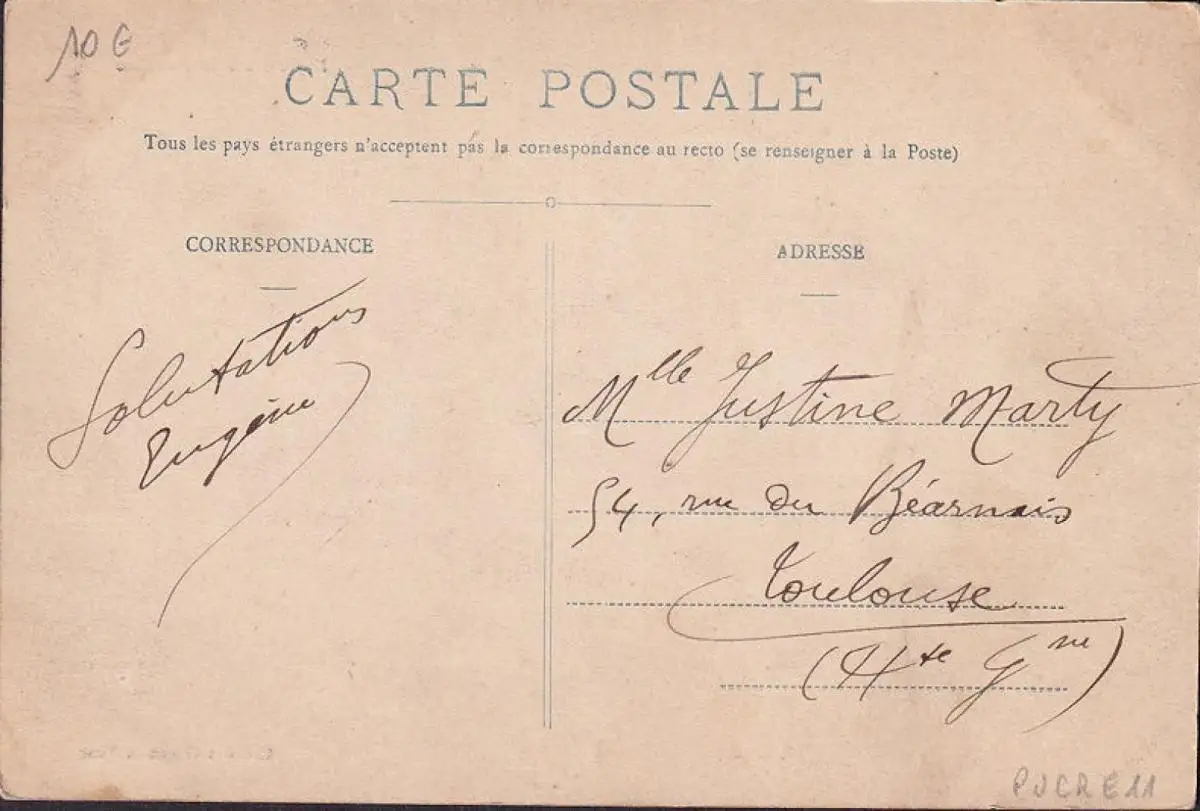 10 €
CARTE POSTALE
Tous les pays étrangers n'acceptent pas la correspondance au recto (se renseigner à la Poste)
CORRESPONDANCE
Salutations
Eugénie
ADRESSE
Mlle Justine Marty
54, rue du Béarnais
Toulouse
(Hte Gne)
PJCRE11